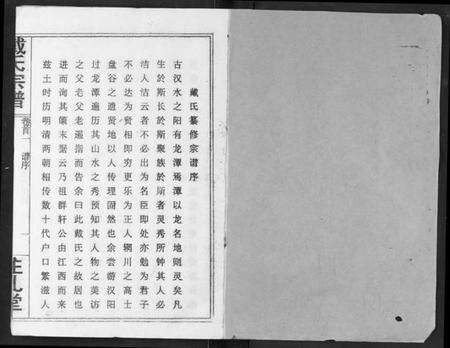 戴氏纂修宗谱序
古汉水之阳有龙潭焉潭以龙名地则灵矣凡
生於斯长於斯聚族於斯者灵秀所钟其人必
洁人洁云者不必出为名臣即处亦勉为君子
不必达为贤相即穷更乐为正人辋川之高士
盘谷之遗贤地以人传理固然也余尝游汉阳
过龙潭遍历其山水之秀预知其人物之美访
之父老父老遥指而告余曰此戴氏之故居也
进而询其颠末据云乃祖群轩公由江西而来
兹土时历明清两朝相传数十代户口繁滋人
戴氏宗谱
卷首
谱序
一